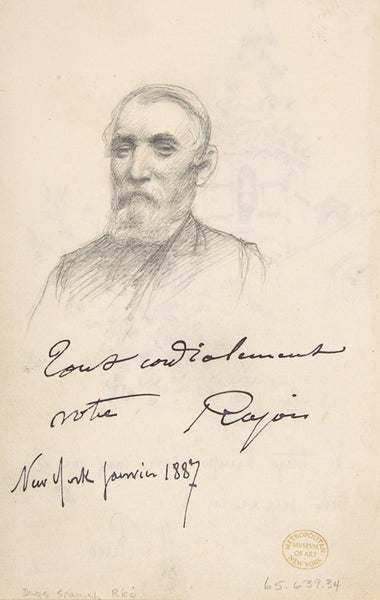 Tout cordialement
votre Rajon
New York janvier 1887
METROPOLITAN
MUSEUM
OF ART
NEW YORK
Dwgs Spanish Rico
65.639.34